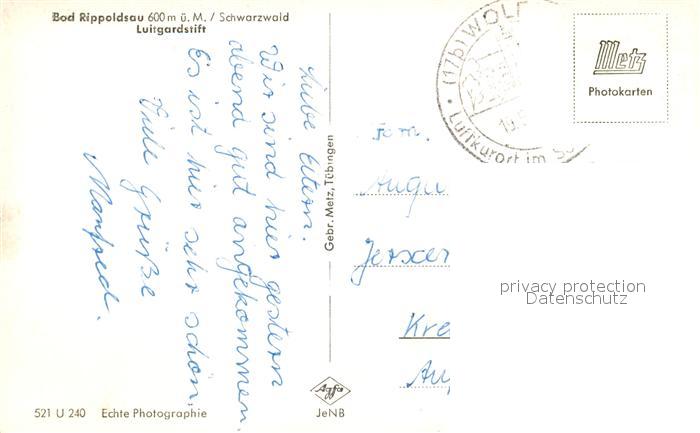 Bad Rippoldsau 600 m ü. M. / Schwarzwald
Luitgardstift
Liebe Eltern.
Wir sind hier gestern
abend gut angekommen.
Es ist hier sehr schön.
Viele Grüße
Manfred.
521 U 240 Echte Photographie
Gebr. Metz, Tübingen
Agfa
JeNB
(17b) WOLF
Luftkurort im
Metz
Photokarten
Fam.
Augu
Jerxer
Kre
privacy protection
Datenschutz